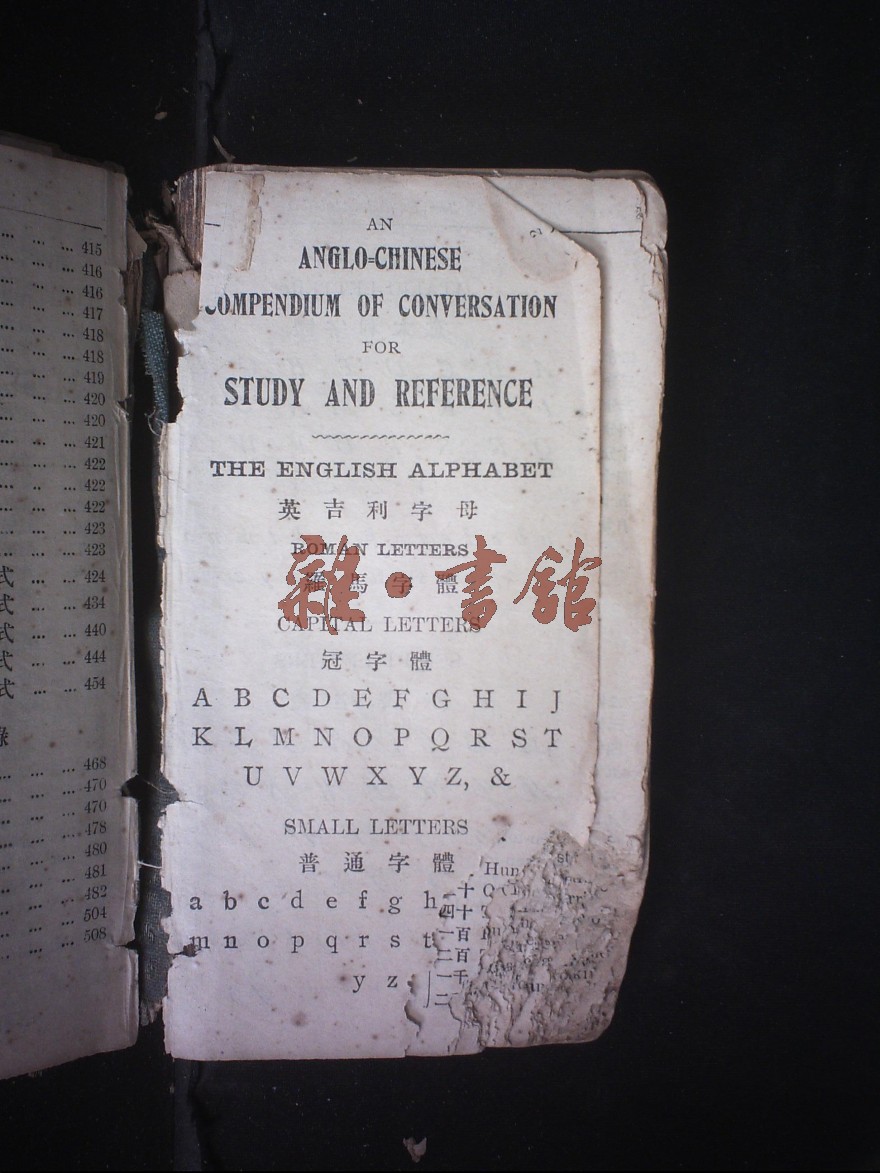 ... ... ... 415
... ... ... 416
... ... ... 416
... ... ... 417
... ... ... 418
... ... ... 418
... ... ... 419
... ... ... 420
... ... ... 420
... ... ... 421
... ... ... 422
... ... ... 422
... ... ... 422
... ... ... 423
... ... ... 423
式 ... ... 424
式 ... ... 434
式 ... ... 440
式 ... ... 444
式 ... ... 454
... ... ... 468
... ... ... 470
... ... ... 470
... ... ... 478
... ... ... 480
... ... ... 481
... ... ... 482
... ... ... 504
... ... ... 508
AN
ANGLO=CHINESE
COMPENDIUM OF CONVERSATION
FOR
STUDY AND REFERENCE
THE ENGLISH ALPHABET
英吉利字母
ROMAN LETTERS
羅馬字體
雜·書館
CAPITAL LETTERS
冠字體
A B C D E F G H I J
K L M N O P Q R S T
U V W X Y Z, &
SMALL LETTERS
普通字體
a b c d e f g h
m n o p q r s t
y z
二十
四十
一百
二百
一千
二